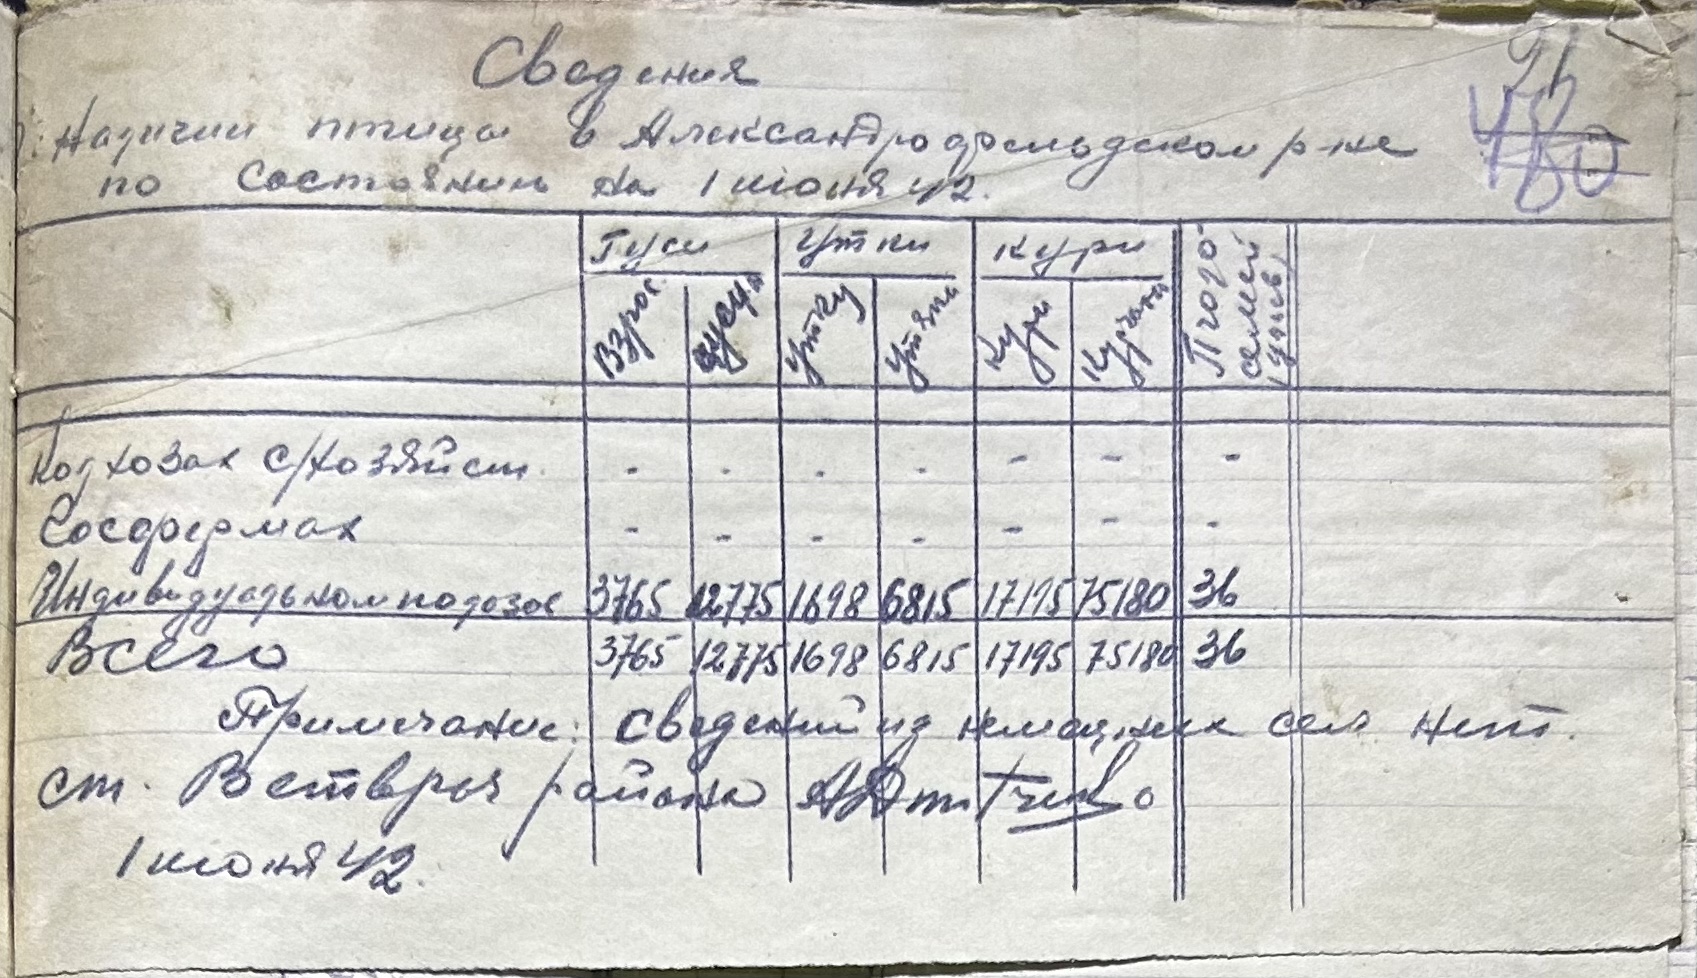 Сведения
Наличии птицы в Александрофельдском р-не
по состоянию на 1 июня 42.
Гуси Утки Куры
Взрос. гусят утки утята Куры Курчата Пчело- семей
Колхозах с/хозяйст. - - - - - - -
Сосфермах - - - - - - -
Индивидуальном 3765 12775 1698 6815 17195 75180 36
Всего 3765 12775 1698 6815 17195 75180 36
Примечание: сведений из немецких сел нет.
ст. Ветврач района
1 июня 42.